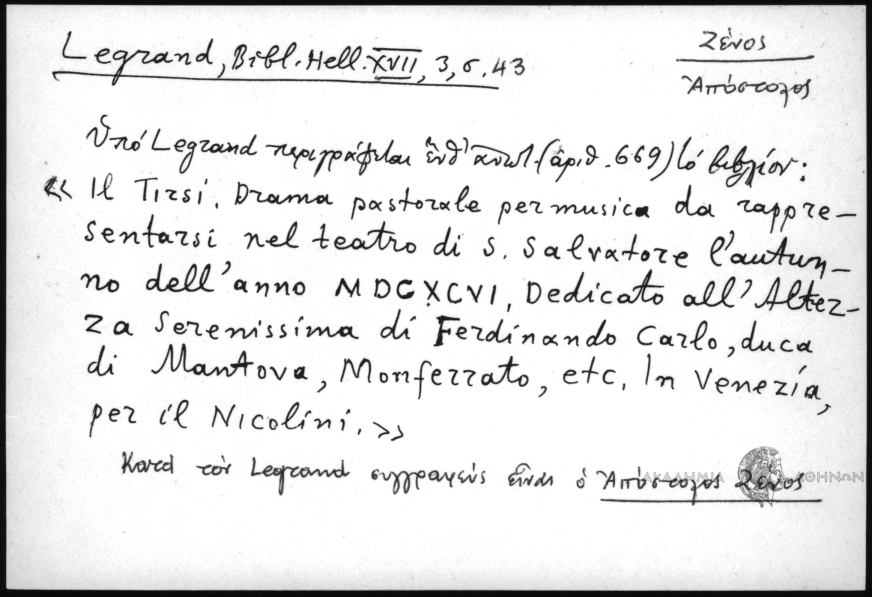 Legrand, Bibl. Hell. XVII, 3, σ. 43
Ζένος
Ἀπόστολος
Ὑπό Legrand περιγράφεται ἐνθ' ἀνωτ. (ἀριθ. 669) τό βιβλίον:
« Il Tirsi. Drama pastorale per musica da rappre-
sentarsi nel teatro di S. Salvatore l'autun-
no dell'anno MDCXCVI, Dedicato all'Altez-
za Serenissima di Ferdinando Carlo, duca
di Mantova, Monferrato, etc. In Venezia,
per il Nicolini. »
Κατά τόν Legrand συγγραφεύς εἶναι ὁ Ἀπόστολος Ζένος
ΑΚΑΔΗΜΙΑ ΑΘΗΝΩΝ